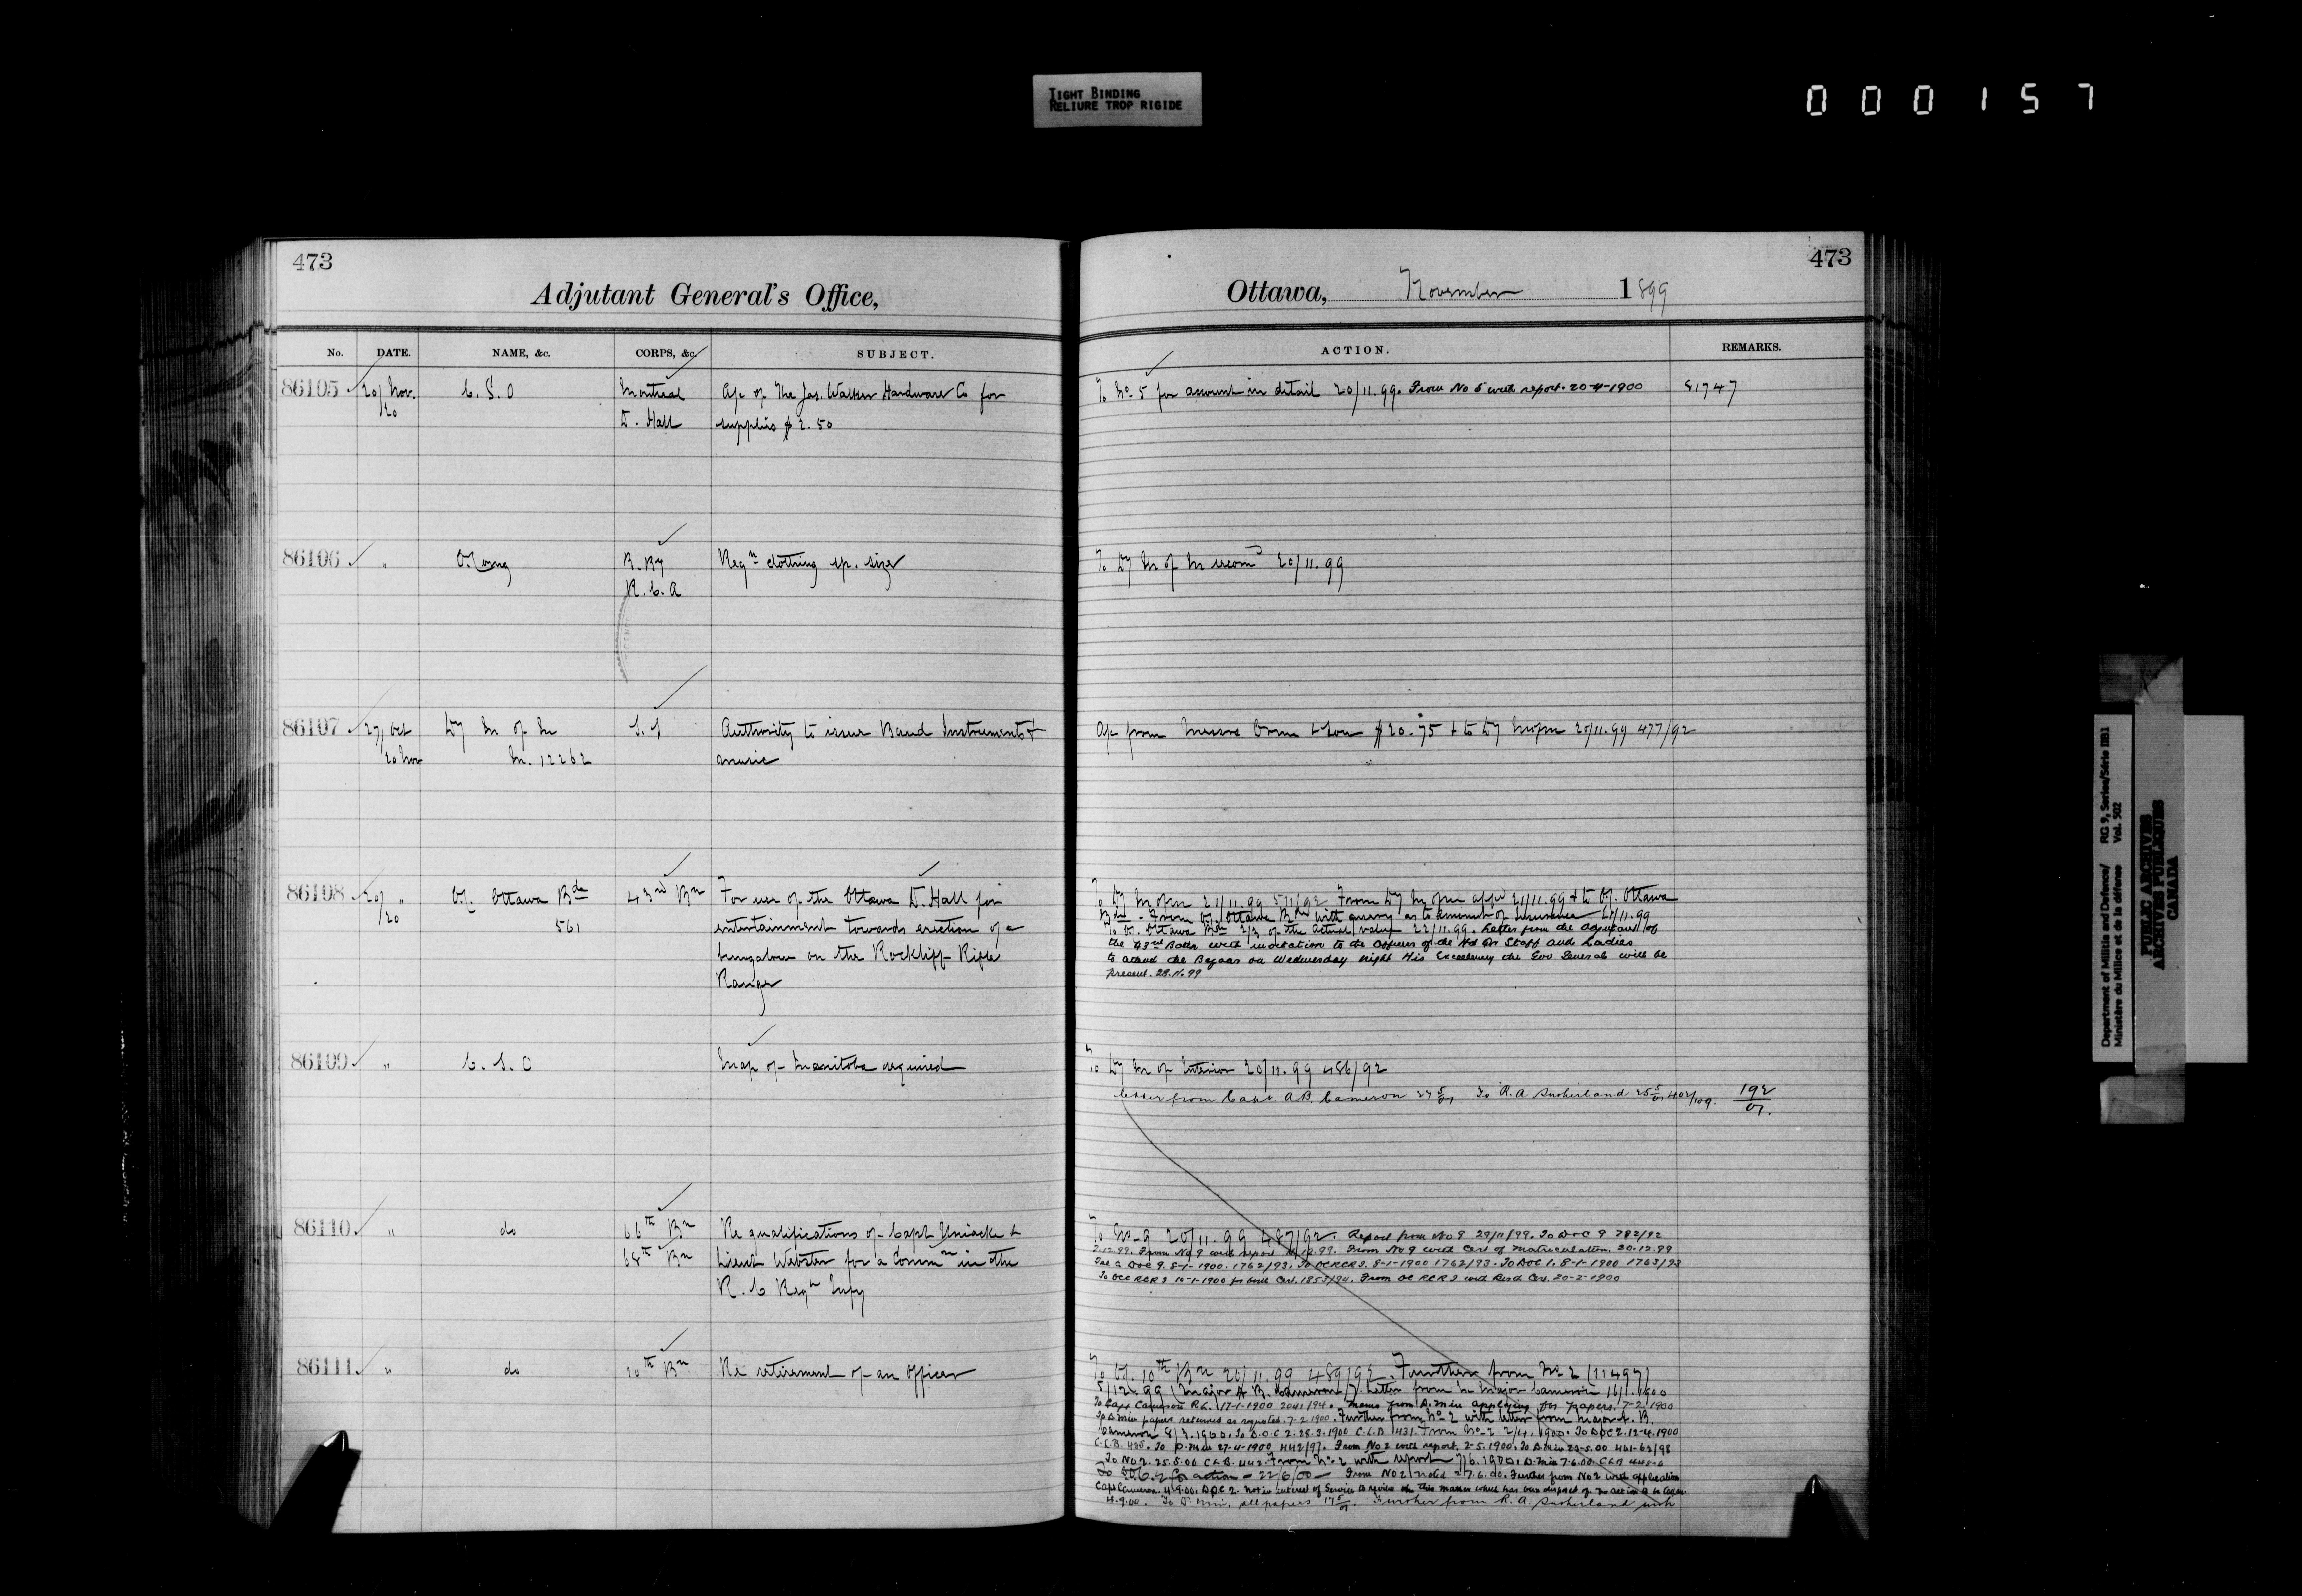 TIGHT BINDING
RELIURE TROP RIGIDE
000157
473
Adjutant General's Office,
No. DATE. NAME, &c. CORPS, &c. SUBJECT.
86105 20/ Nov. C. S. O Montreal A/c of The Jas. Walker Hardware Co for
/20 D. Hall supplies $2.50
86106 " R. By Reqn clothing sp. sizes
R. C. A
86107 27/ Oct Dy M of M S. S Authority to issue Band Instruments +
20 Nov M. 12262 music
86108 20/ " Ottawa Bde 43rd Bn For use of the Ottawa D. Hall for
/20 561 entertainment towards erection of a
bungalow on the Rockliff Rifle
Range
86109 " C. S. O Map of Manitoba required
86110 " do 66th Bn Re qualifications of Capt Uniacke &
68th Bn Lieut Webster for a Commn in the
R. C Regt Infy
86111 " do 10th Bn Re retirement of an Officer
473
Ottawa, November 1899
ACTION. REMARKS.
To No. 5 for account in detail 20/11.99. From No 5 with report. 20-4-1900 81747
To Dy M of M 20/11.99
A/c from Messrs Orme & Son $20.75 + to Dy M of M 20/11.99 477/92
To Dy M of M 21/11.99 511/92 From Dy M of M appd 21/11.99 & to Ottawa
Bde - From Ottawa Bde with query as to amount of Insurance /11.99
To Ottawa Bde 2/3 of the actual value 22/11.99. Letter from the Adjutant of
the 43rd Battn with invitation to the Officers of the Hd Qr Staff and Ladies
to attend the Bazaar on Wednesday night His Excellency the Gov General will be
present. 28.11.99
To Dy M of Interior 20/11.99 486/92
Letter from Capt A.B. Cameron To R. A Sutherland 192
01.
To No 9 20/11.99 487/92. Report from No 9 29/11/99. To DOC 9 782/92
2.12.99. From No 9 with report 12.99. From No 9 with Cert of Matriculation. 20.12.99
DOC 9. 8-1-1900. 1762/93. To OCRCR I. 8-1-1900 1762/93. To DOC 1. 8-1-1900 1763/93
To OCC RCR I 10-1-1900 for birth Cert. 1853/94. From OC RCR I with Birth Cert. 20-2-1900
To 10th Bn 20/11.99 489/92. Further from No 2 (11497)
5/12.99 (Major A. B. Cameron) Letter from Major Cameron 16/1.1900
To Capt Cameron R.L. 17-1-1900 2041/94. Memo from D. Min applying for papers. 7-2.1900
To D. Min papers returned as requested. 7-2-1900. Further from No 2 with letter from Major A. B.
Cameron 8/3.1900. To D.O.C 2. 28-3-1900 C.L.B 431. From No 2 2/4.1900. To DOC 2. 12-4-1900
C.L.B. 435. To D. Min 27-4-1900 442/97. From No 2 with report. 2-5.1900. To D. Min 23-5.00 461-63/98
To No 2. 25.5.00 C L B. 442. From No 2 with report 7/6.1900. D. Min 7.6.00. CLB
To D.O.C. 2 for action - 22/6/00 - From No 2 noted 7.6.00. Further from No 2 with application
Capt Cameron. 4.9.00. DOC 2. Not in interest of Service to revive this matter which has been disposed of. No action to be taken
.9.00. To D. Min. all papers Further from R. A Sutherland with
Department of Militia and Defence/ RG 9, Series/Série IIB1
Ministère du Milice et de la défence Vol. 502
PUBLIC ARCHIVES
ARCHIVES PUBLIQUES
CANADA